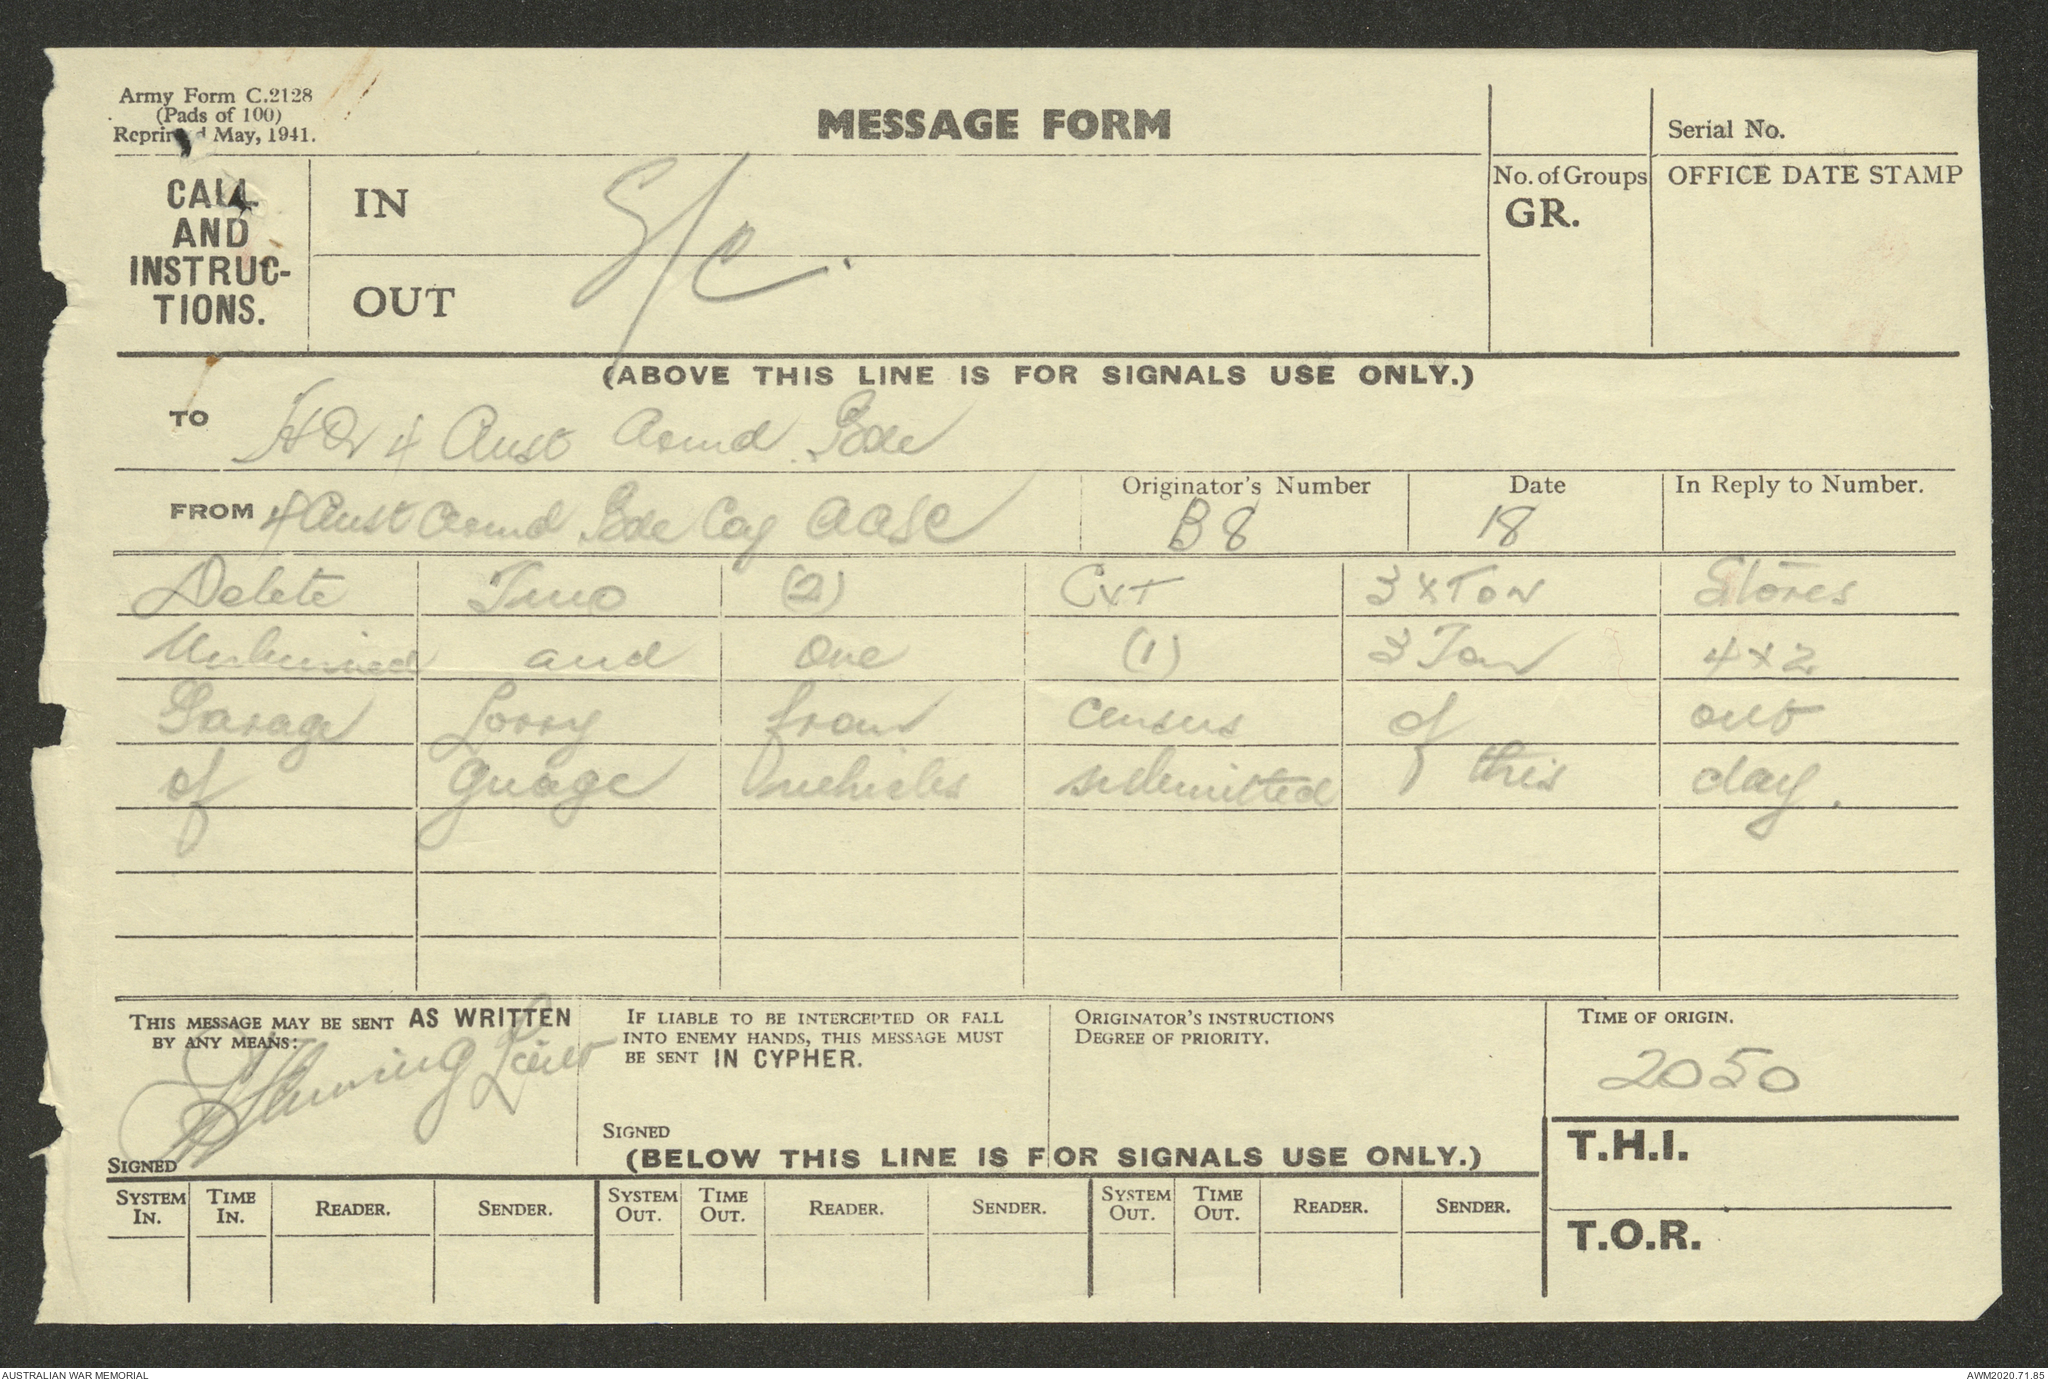 Army Form C.2128
(Pads of 100)
Reprinted May, 1941.
MESSAGE FORM
Serial No.
CALL AND INSTRUC-TIONS.
IN
S/C.
OUT
No. of Groups
GR.
OFFICE DATE STAMP
(ABOVE THIS LINE IS FOR SIGNALS USE ONLY.)
TO HQ 4 Aust Armd. Bde
FROM 4 Aust Armd Bde Coy AASC
Originator's Number B8
Date 18
In Reply to Number.
Delete Two (2) CVT 3 x Ton Stores
and One (1) 3 Ton 4x2
Garage Lorry from census of out
of guage vehicles submitted this day.
THIS MESSAGE MAY BE SENT AS WRITTEN
BY ANY MEANS:
SIGNED
IF LIABLE TO BE INTERCEPTED OR FALL
INTO ENEMY HANDS, THIS MESSAGE MUST
BE SENT IN CYPHER.
SIGNED
ORIGINATOR'S INSTRUCTIONS
DEGREE OF PRIORITY.
TIME OF ORIGIN.
2050
(BELOW THIS LINE IS FOR SIGNALS USE ONLY.)
T.H.I.
T.O.R.
SYSTEM IN. TIME IN. READER. SENDER. SYSTEM OUT. TIME OUT. READER. SENDER. SYSTEM OUT. TIME OUT. READER. SENDER.
AUSTRALIAN WAR MEMORIAL
AWM2020.71.85